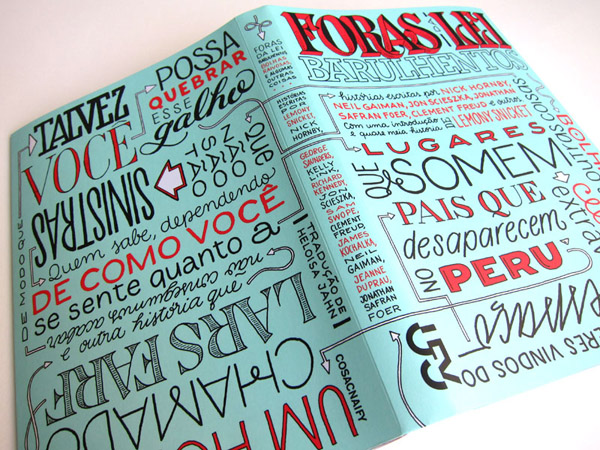 TALVEZ
VOCÊ
POSSA
QUEBRAR
ESSE
galho
SINISTRAS
QUE
DE MODO QUE
Quem sabe, dependendo
DE COMO VOCÊ
se sente quanto a
não conseguimos acabar
e outra história que
LARS FARF
CHAMADO
UM
FORAS
DA LEI
BARULHENTOS,
BOLHAS
RAIVOSAS
E ALGUMAS
OUTRAS
COISAS
HISTÓRIAS
ESCRITAS
POR
LEMONY
SNICKET,
NICK
HORNBY,
GEORGE
SAUNDERS,
KELLY
LINK,
RICHARD
KENNEDY,
JON
SCIESZKA,
SAM
SWOPE,
CLEMENT
FREUD,
JAMES
KOCHALKA,
NEIL
GAIMAN,
JEANNE
DUPRAU,
JONATHAN
SAFRAN
FOER
TRADUÇÃO DE
HELOISA JAHN
COSACNAIFY
FORAS DA LEI
BARULHENTOS
histórias escritas por NICK HORNBY,
NEIL GAIMAN, JON SCIESZKA, JONATHAN
SAFRAN FOER, CLEMENT FREUD e outros
Com uma introdução
e quase meia história DE LEMONY SNICKET
LUGARES
QUE SOMEM
PAIS QUE
desaparecem
NO PERU
extra
ERES VINDOS DO